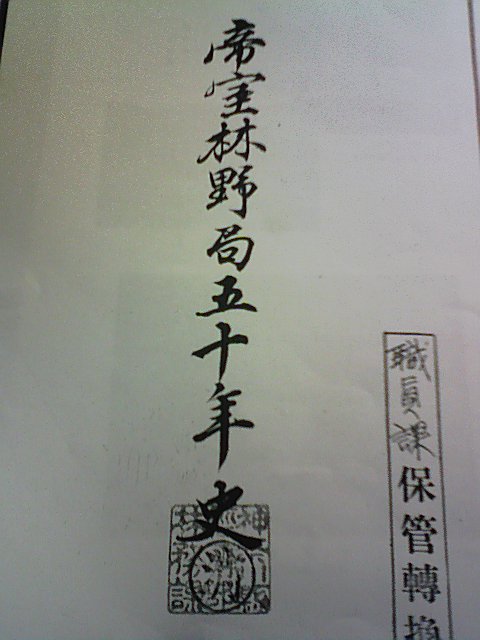 帝室林野局五十年史
職員課保管轉換